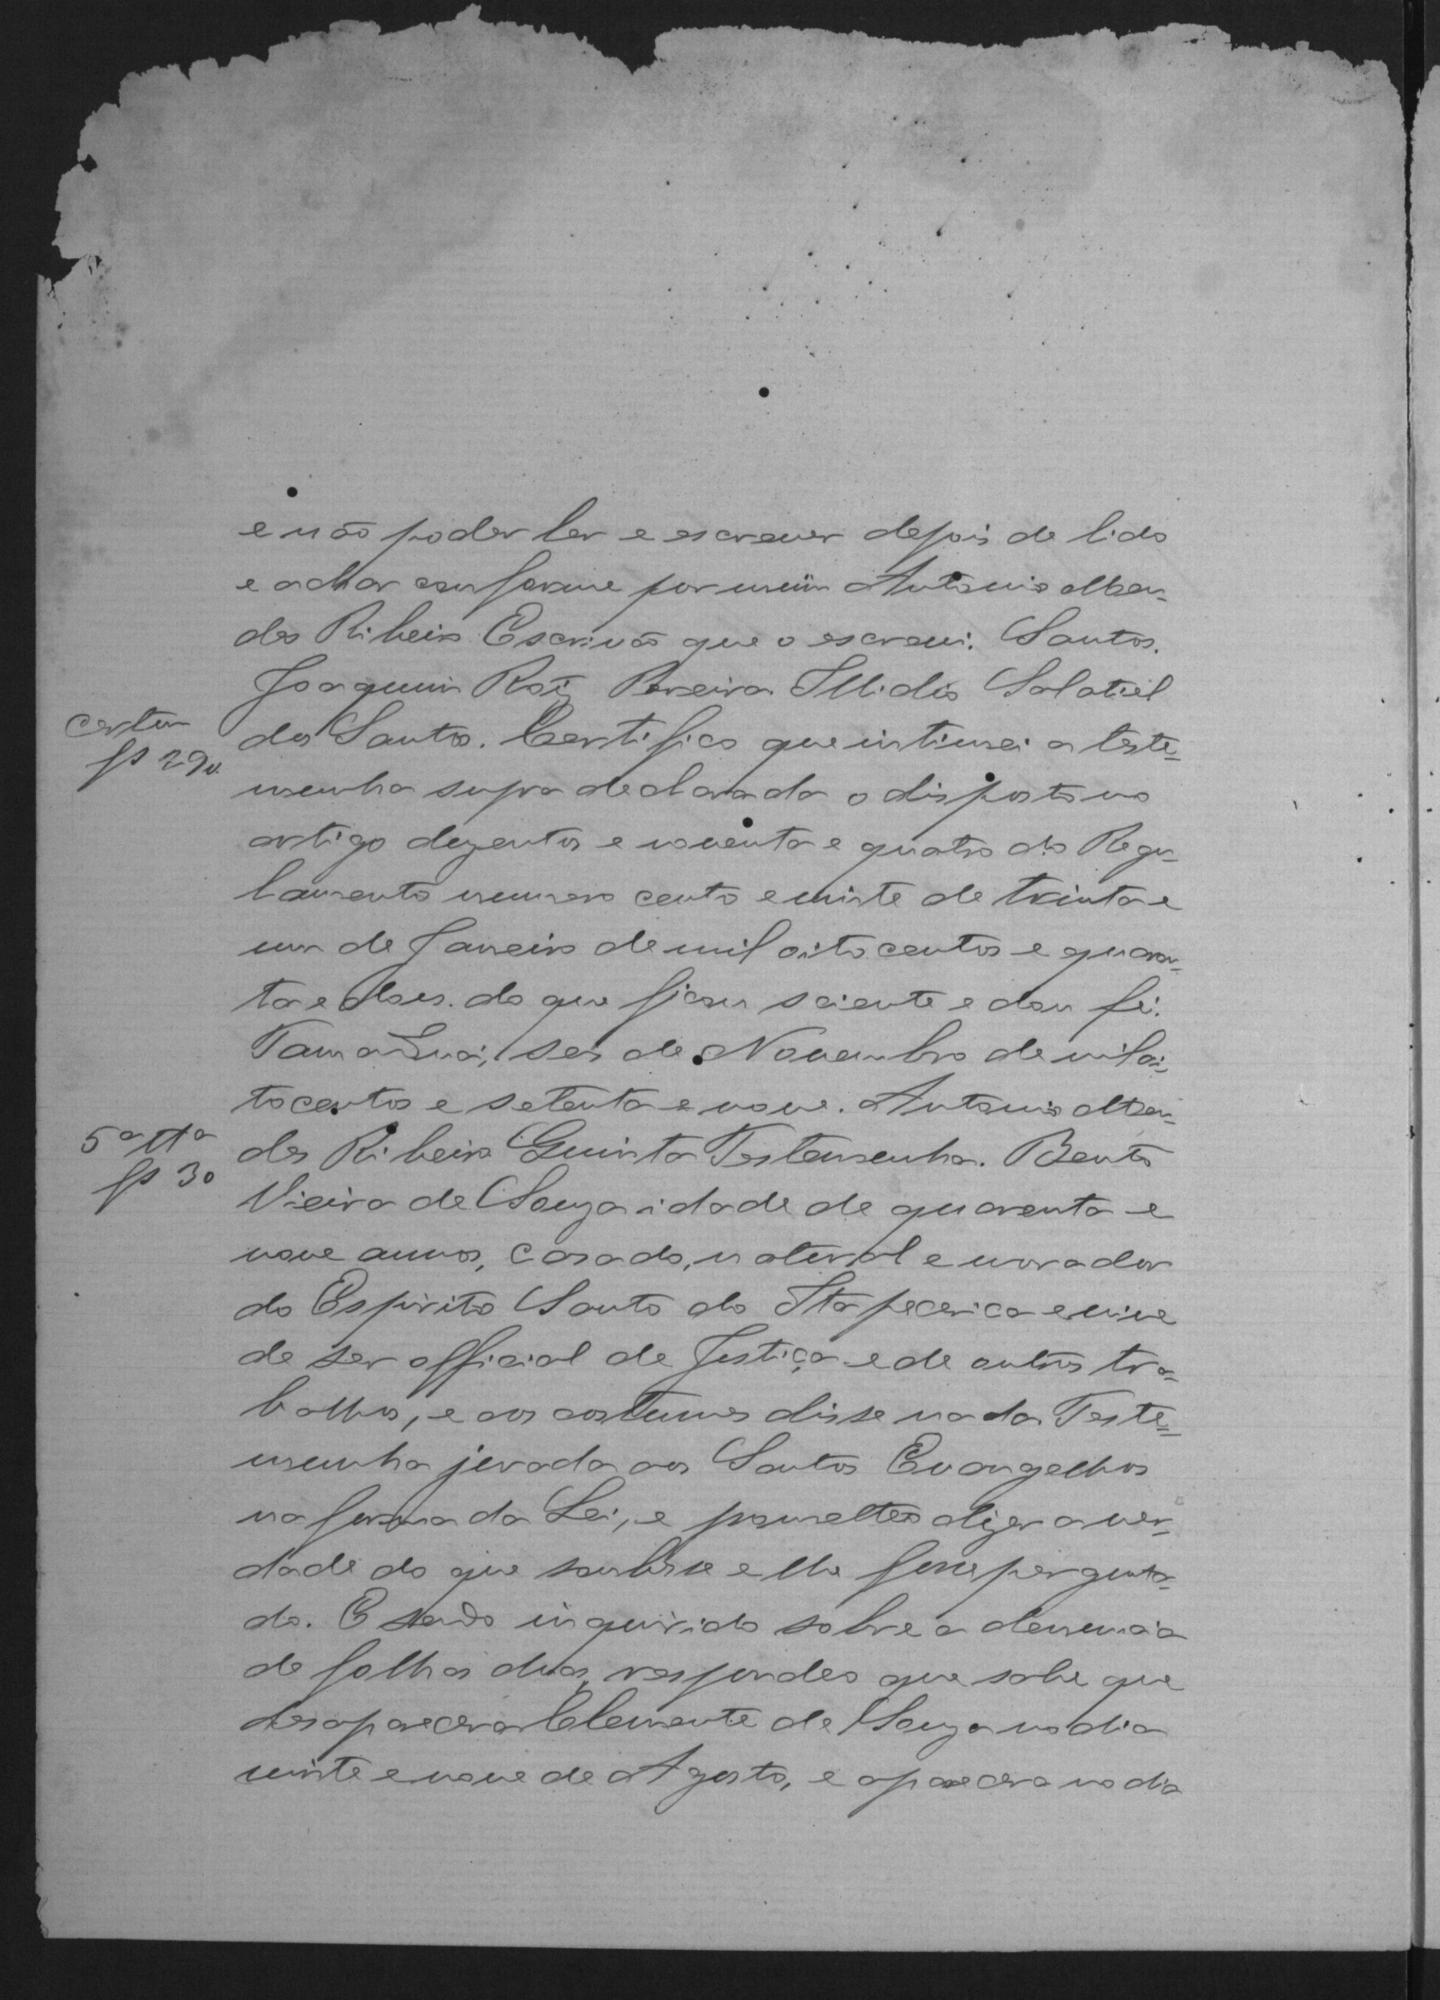 e não poder ler e escrever depois de lido
e achar conforme por mim Antonio Men-
des Ribeiro Escrivão que o escrevi. Santos.
Joaquim Roiz Pereira Illidio Salatiel
dos Santos. Certifico que intimei a teste-
certam
fs 29v.
munha supra declarada o disposto no
artigo dezentos e noventa e quatro do Regu-
lamento numero cento e vinte de trinta e
um de Janeiro de mil oito centos e quaren-
ta e dous. do que ficou sciente e dou fé.
Tamanduá, seis de Novembro de mil oi-
tocentos e setenta e nove. Antonio Men-
5ª ttª
fs 30
des Ribeiro Quinta Testemunha. Bento
Vieira de Souza idade de quarenta e
nove annos, casado, natural e morador
do Espirito Santo do Itapecerica e vive
de ser official de Justiça e de outros tra-
balhos, e aos costumes disse nada Teste-
munha jurada aos Santos Evangelhos
na forma da Lei, e prometteo dizer a ver-
dade do que soubesse e lhe fosse pergunta-
do. E sendo inquirido sobre a denuncia
de folhas duas, respondeo que sabe que
desaparecera Clemente de Souza no dia
vinte e nove de Agosto, e aparecera no dia